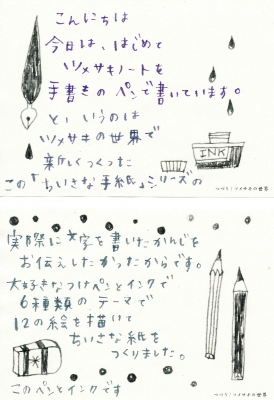 こんにちは
今日は、はじめて
ツメサキノートを
手書きのペンで書いています。
というのは
ツメサキの世界で
新しくつくった
この「ちいさな手紙」シリーズの
INK
つづり/ツメサキの世界
実際に文字を書いたかんじを
お伝えしたかったからです。
大好きなつけペンとインクで
6種類のテーマで
12の絵を描いて
ちいさな紙を
つくりました。
このペンとインクです
つづり/ツメサキの世界